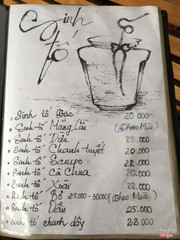 Sinh
tố
Sinh tố Bơ 20.000
Sinh tố Mãng Cầu (Theo Mùa)
Sinh tố 22.000
Sinh tố Chanh tuyết 20.000
Sinh tố Sampo 22.000
Sinh tố Cà Chua 20.000
Sinh tố Xoài 22.000
Sinh tố Bơ 25.000-30.000 (Theo Mùa)
Sinh tố Dâu 25.000
Sinh tố chanh dây 22.000